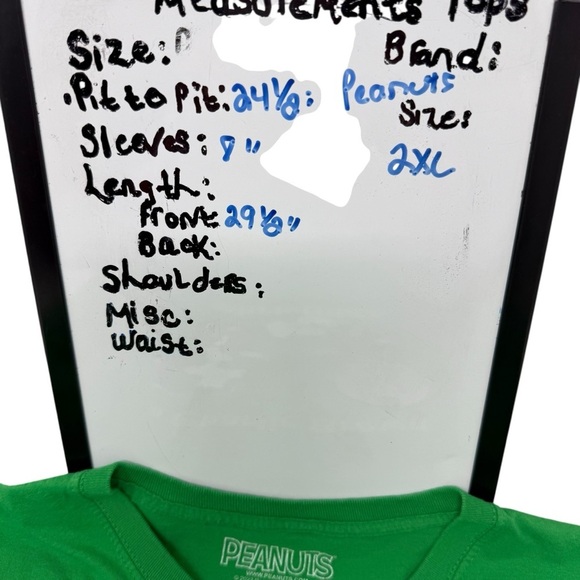 Measurements Tops
Size:
Brand:
Pit to Pit: 24 1/2" Peanuts
Size:
Sleeves: 8"
2XL
Length:
Front 29 1/2"
Back:
Shoulders:
Misc:
Waist:
PEANUTS